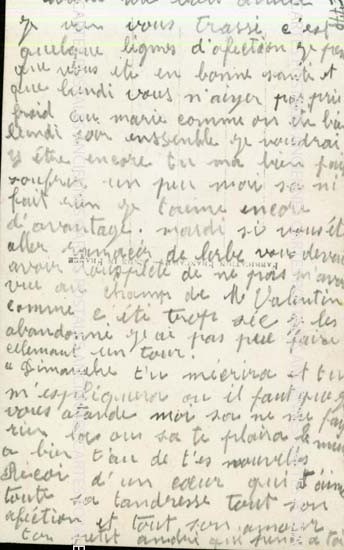 je vien vous trassi c est
quelque lignes d'afection je pense
que vous ete en bonne santé et
que lundi vous n'aiyer pas pris
froid au marie comme on en bien
lundi soir enssemble je voudrai
y être encore tu ma bien fais
souffrir un peu moi sa ni
fait rien je t'aime encore
d'avantage. mardi si vous ét
aller ramacer de lerbe vous devai
avoir de ne pas m'avoir
vue au champ de Mr Valentin
comme c eté trop sec je les
abandonné je ai pas peu faire
cellemant un tour.
a Dimanche t'u m'ecrira et tu
m'espliquera ou il faut que je
vous atande moi sa ne me fai
rien la ou sa te plaira le mieu
a bien t'au de t'es nouvelle
Recoi d'un cœur qui t'aime
toute sa tandresse tout son
afection et tout son amour
ton petit andré qui pense a toi